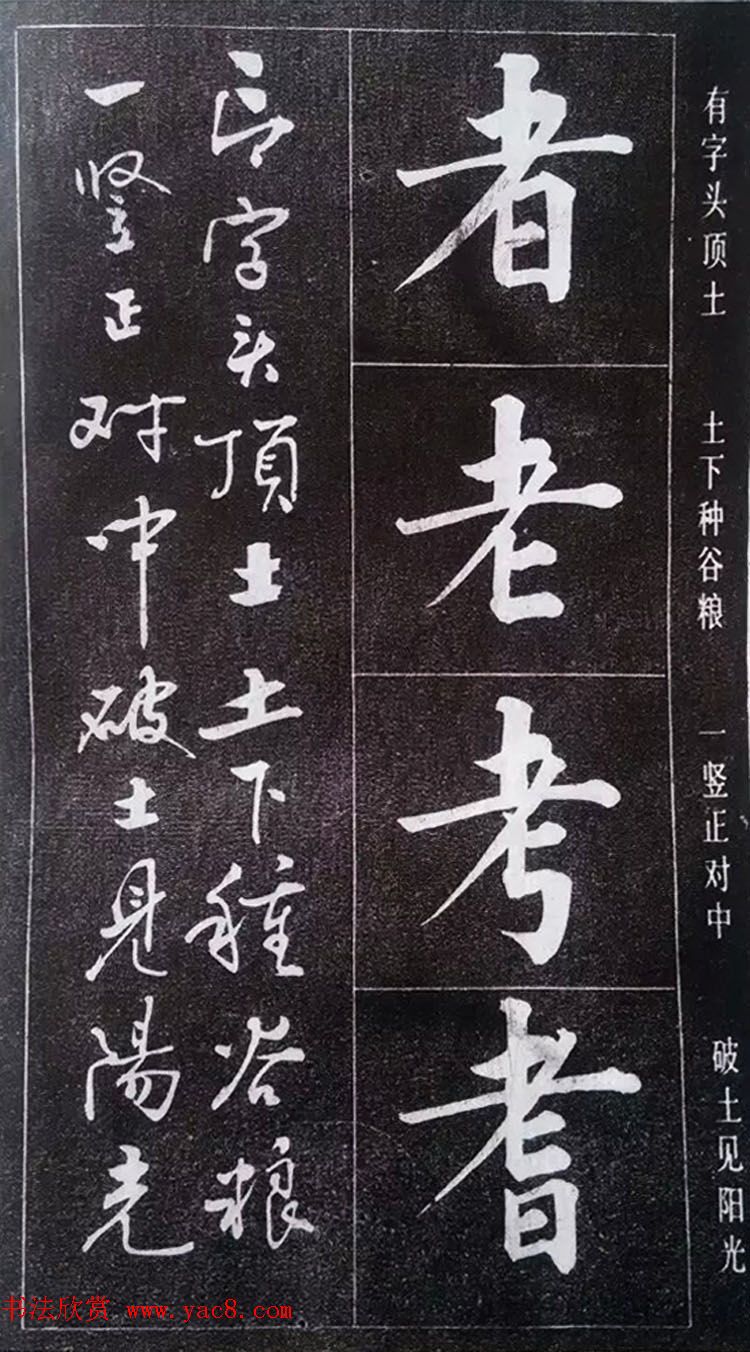 有字头顶土 土下种谷粮 一竖正对中 破土见阳光
者
老
考
耆
有字头頂土土下種谷粮
一竖正对中破土見陽光
书法欣赏 www.yac8.com